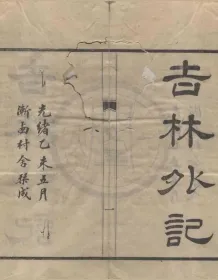 吉林外記
光緒乙未五月
漸西村舍栞成